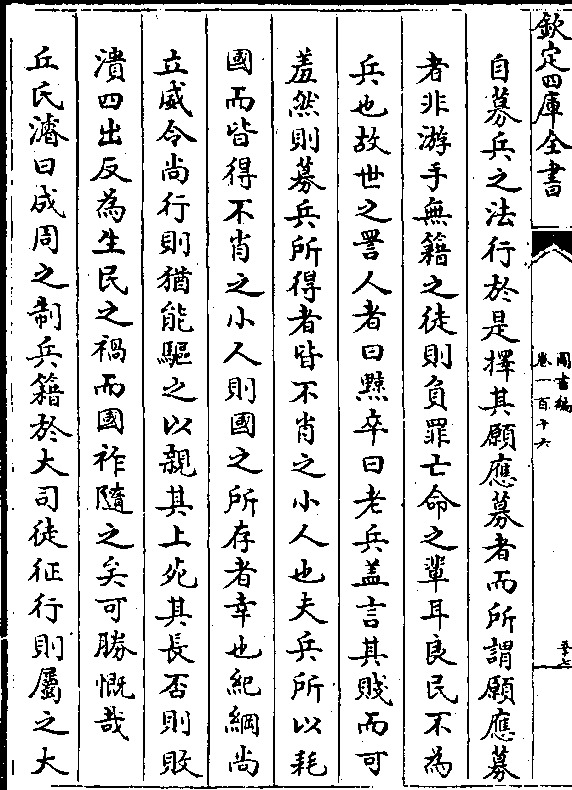 欽定四庫全書
圖書編
卷一百十六
自募兵之法行於是擇其願應募者而所謂願應募
者非游手無籍之徒則負罪亡命之輩耳良民不為
兵也故世之詈人者曰黥卒曰老兵盖言其賤而可
羞然則募兵所得者皆不肖之小人也夫兵所以耗
國而皆得不肖之小人則國之所存者幸也紀綱尚
立威令尚行則猶能驅之以親其上死其長否則敗
潰四出反為生民之禍而國祚隨之矣可勝慨哉
丘氏濬曰成周之制兵籍於大司徒征行則屬之大